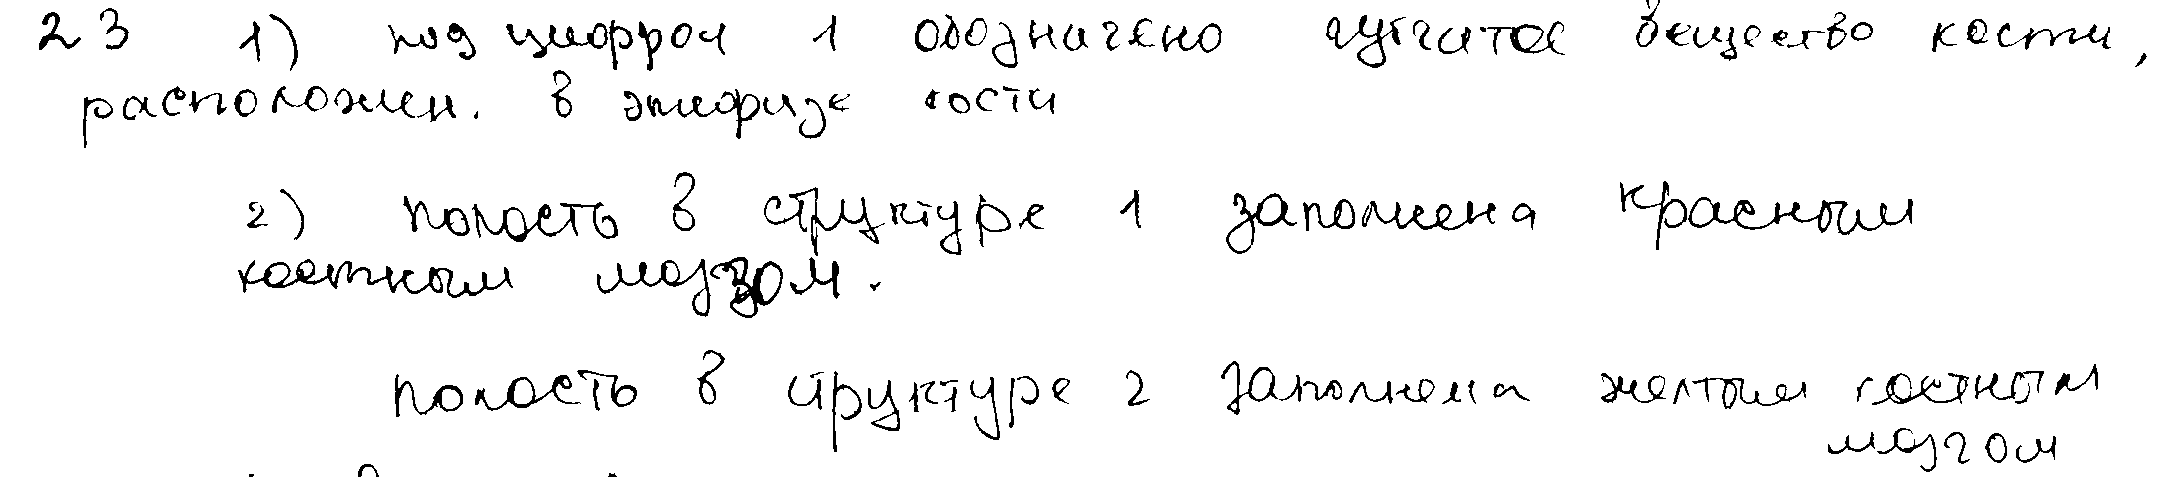 23 1) под цифрой 1 обозначено губчатое вещество кости,
расположен. в эпифизе кости
2) полость в структуре 1 заполнена красным
костным мозгом.
полость в структуре 2 заполнена желтым костным
мозгом